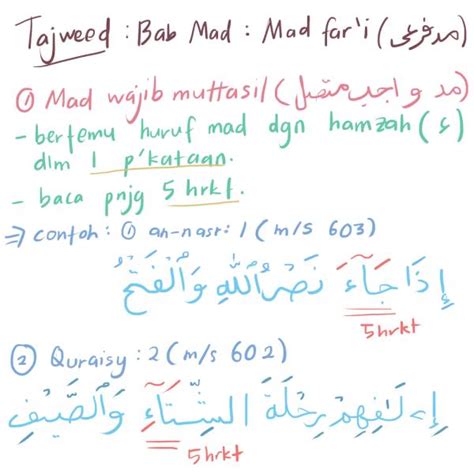 Tajweed : Bab Mad : Mad far'i (مد فرعي)
① Mad wajib muttasil (مد واجب متصل)
- bertemu huruf mad dgn hamzah (ء)
dlm 1 p'kataan.
- baca pnjg 5 hrkt.
⇒ contoh : ① an-nasr : 1 (m/s 603)
إِذَا جَآءَ نَصْرُ ٱللَّهِ وَٱلْفَتْحُ
5hrkt
② Quraisy : 2 (m/s 602)
إِۦلَٰفِهِمْ رِحْلَةَ ٱلشِّتَآءِ وَٱلصَّيْفِ
5hrkt